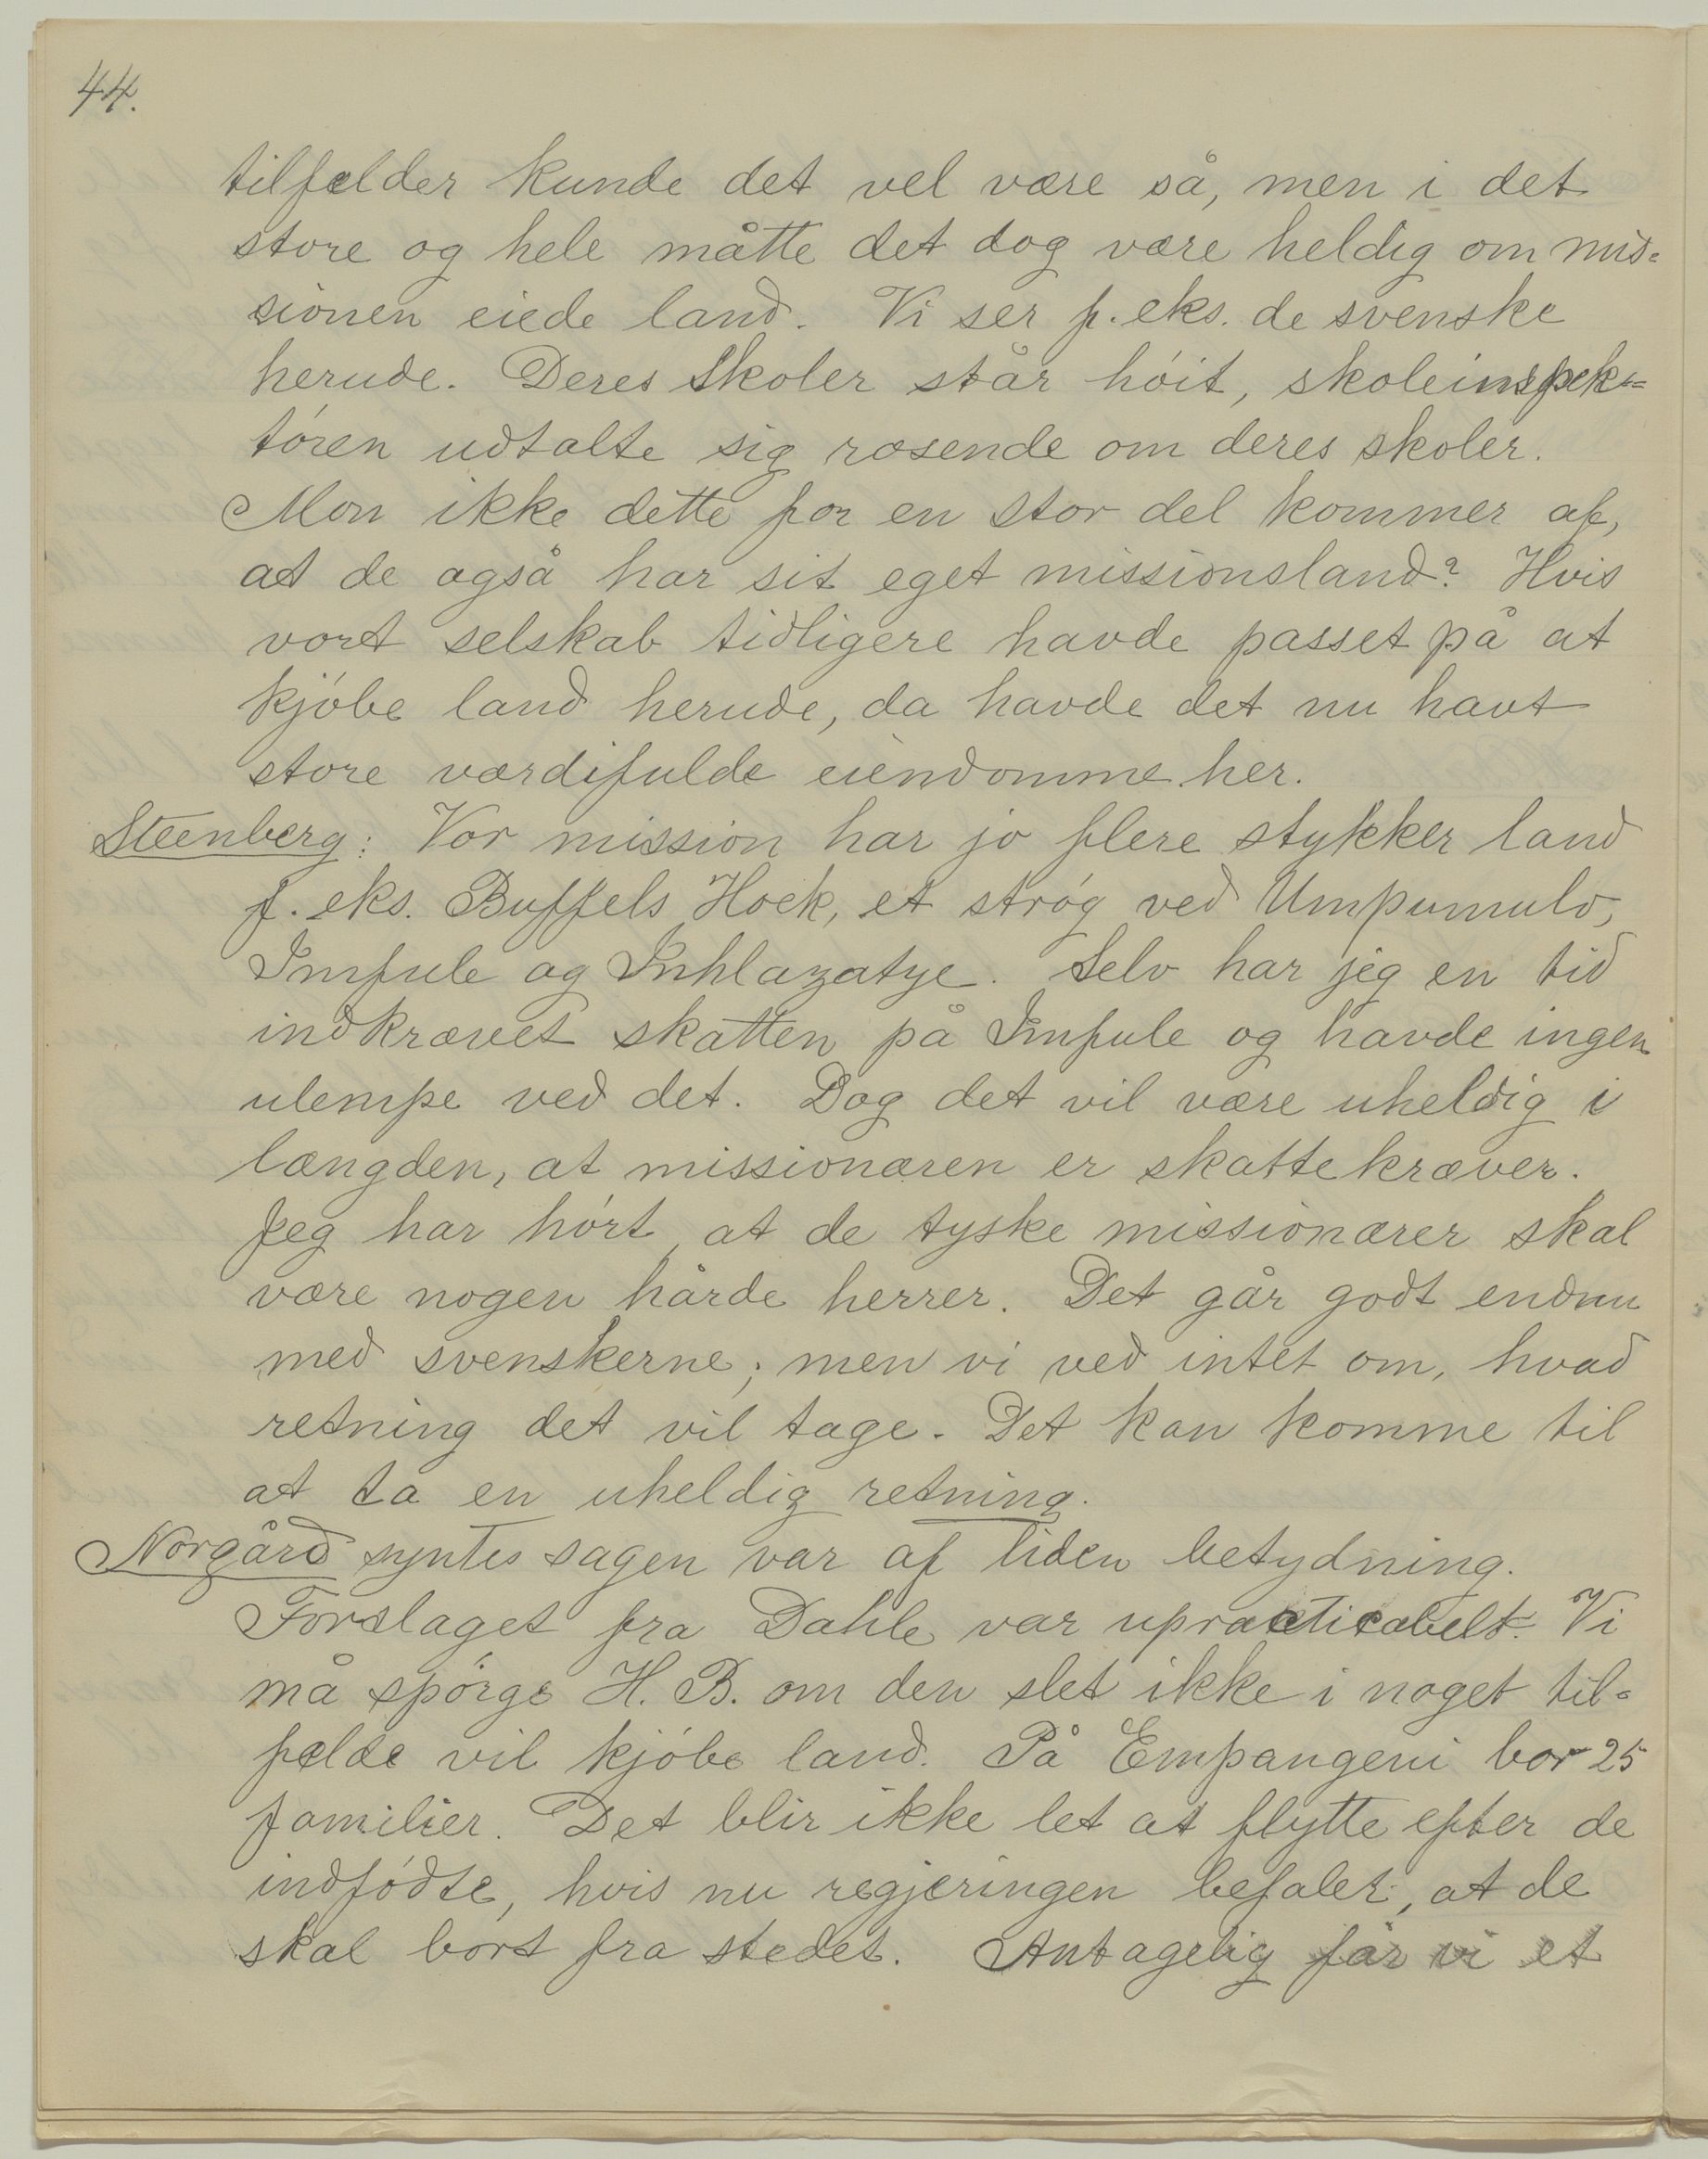 44.
tilfælder kunde det vel være så, men i det
store og hele måtte det dog være heldig om mis-
sionen eiede land. Vi ser f. eks. de svenske
herude. Deres Skoler står höit, skoleinspek-
tören udtalte sig rosende om deres skoler.
Mon ikke dette for en stor del kommer af,
at de også har sit eget missionsland? Hvis
vort selskab tidligere havde passet på at
kjöbe land herude, da havde det nu havt
store værdifulde eiendomme her.
Steenberg: Vor mission har jo flere stykker land
f. eks. Buffels Hoek, et strög ved Umpumulo,
Imfule og Inhlazatye. Selv har jeg en tid
indkrævet skatten på Imfule og havde ingen
ulempe ved det. Dog det vil være uheldig i
længden, at missionæren er skattekræver.
Jeg har hört, at de tyske missionærer skal
være nogen hårde herrer. Det går godt endnu
med svenskerne; men vi ved intet om, hvad
retning det vil tage. Det kan komme til
at ta en uheldig retning.
Norgård syntes sagen var af liden betydning.
Forslaget fra Dahle var upracticabelt. Vi
må spörge H. B. om den slet ikke i noget til-
fælde vil kjöbe land. På Empangeni bor 25
familier. Det blir ikke let at flytte efter de
indfödte, hvis nu regjeringen befaler, at de
skal bort fra stedet. Antagelig får vi et